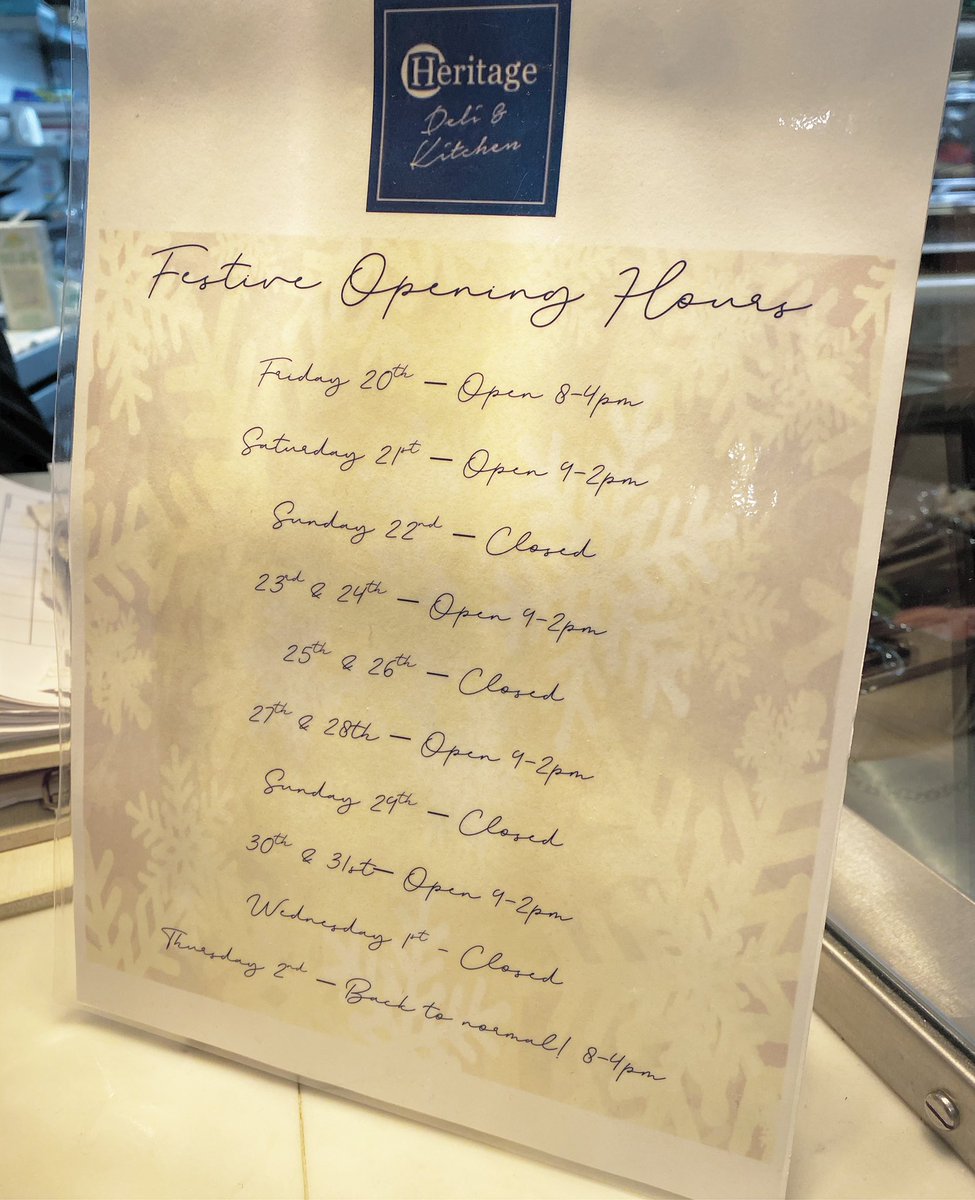 Heritage
Deli &
Kitchen
Festive Opening Hours
Friday 20th – Open 8-4pm
Saturday 21st – Open 9-2pm
Sunday 22nd – Closed
23rd & 24th – Open 9-2pm
25th & 26th – Closed
27th & 28th – Open 9-2pm
Sunday 29th – Closed
30th & 31st– Open 9-2pm
Wednesday 1st - Closed
Thursday 2nd – Back to normal! 8-4pm